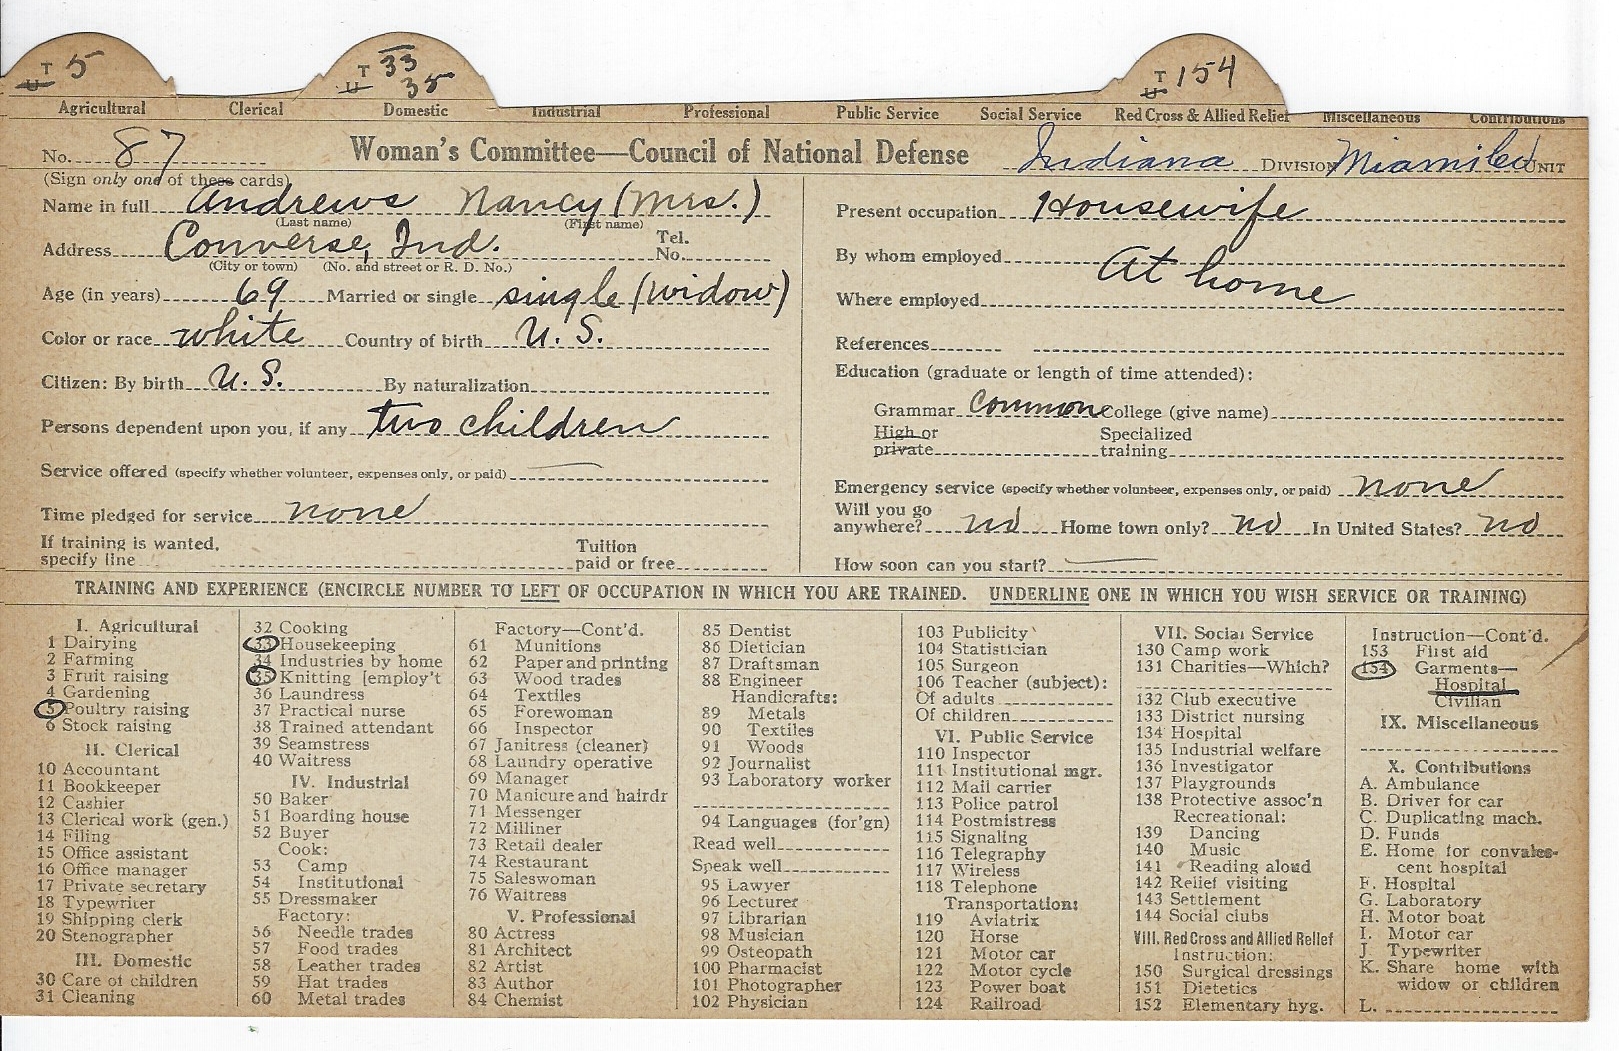 T 5 T 33 T 154
U U 35 U
Agricultural Clerical Domestic Industrial Professional Public Service Social Service Red Cross & Allied Relief Miscellaneous Contributions
No. 87 Woman's Committee—Council of National Defense Indiana DIVISION Miami Co UNIT
(Sign only one of these cards)
Name in full Andrews Nancy (Mrs.)
(Last name) (First name)
Address Converse, Ind. Tel. No.
(City or town) (No. and street or R. D. No.)
Age (in years) 69 Married or single single (widow)
Color or race white Country of birth U. S.
Citizen: By birth U. S. By naturalization
Persons dependent upon you, if any two children
Service offered (specify whether volunteer, expenses only, or paid) —
Time pledged for service none
If training is wanted, Tuition
specify line paid or free
Present occupation Housewife
By whom employed At home
Where employed
References
Education (graduate or length of time attended):
Grammar Common College (give name)
High or Specialized
private training
Emergency service (specify whether volunteer, expenses only, or paid) none
Will you go
anywhere? no Home town only? no In United States? no
How soon can you start? —
TRAINING AND EXPERIENCE (ENCIRCLE NUMBER TO LEFT OF OCCUPATION IN WHICH YOU ARE TRAINED. UNDERLINE ONE IN WHICH YOU WISH SERVICE OR TRAINING)
I. Agricultural
1 Dairying
2 Farming
3 Fruit raising
4 Gardening
5 Poultry raising
6 Stock raising
II. Clerical
10 Accountant
11 Bookkeeper
12 Cashier
13 Clerical work (gen.)
14 Filing
15 Office assistant
16 Office manager
17 Private secretary
18 Typewriter
19 Shipping clerk
20 Stenographer
III. Domestic
30 Care of children
31 Cleaning
32 Cooking
33 Housekeeping
34 Industries by home
35 Knitting [employ't
36 Laundress
37 Practical nurse
38 Trained attendant
39 Seamstress
40 Waitress
IV. Industrial
50 Baker
51 Boarding house
52 Buyer
Cook:
53 Camp
54 Institutional
55 Dressmaker
Factory:
56 Needle trades
57 Food trades
58 Leather trades
59 Hat trades
60 Metal trades
Factory—Cont'd.
61 Munitions
62 Paper and printing
63 Wood trades
64 Textiles
65 Forewoman
66 Inspector
67 Janitress (cleaner)
68 Laundry operative
69 Manager
70 Manicure and hairdr
71 Messenger
72 Milliner
73 Retail dealer
74 Restaurant
75 Saleswoman
76 Waitress
V. Professional
80 Actress
81 Architect
82 Artist
83 Author
84 Chemist
85 Dentist
86 Dietician
87 Draftsman
88 Engineer
Handicrafts:
89 Metals
90 Textiles
91 Woods
92 Journalist
93 Laboratory worker
94 Languages (for'gn)
Read well
Speak well
95 Lawyer
96 Lecturer
97 Librarian
98 Musician
99 Osteopath
100 Pharmacist
101 Photographer
102 Physician
103 Publicity
104 Statistician
105 Surgeon
106 Teacher (subject):
Of adults
Of children
VI. Public Service
110 Inspector
111 Institutional mgr.
112 Mail carrier
113 Police patrol
114 Postmistress
115 Signaling
116 Telegraphy
117 Wireless
118 Telephone
Transportation:
119 Aviatrix
120 Horse
121 Motor car
122 Motor cycle
123 Power boat
124 Railroad
VII. Social Service
130 Camp work
131 Charities—Which?
132 Club executive
133 District nursing
134 Hospital
135 Industrial welfare
136 Investigator
137 Playgrounds
138 Protective assoc'n
Recreational:
139 Dancing
140 Music
141 Reading aloud
142 Relief visiting
143 Settlement
144 Social clubs
VIII. Red Cross and Allied Relief
Instruction:
150 Surgical dressings
151 Dietetics
152 Elementary hyg.
Instruction—Cont'd.
153 First aid
154 Garments—
Hospital
Civilian
IX. Miscellaneous
X. Contributions
A. Ambulance
B. Driver for car
C. Duplicating mach.
D. Funds
E. Home for convales-
cent hospital
F. Hospital
G. Laboratory
H. Motor boat
I. Motor car
J. Typewriter
K. Share home with
widow or children
L.